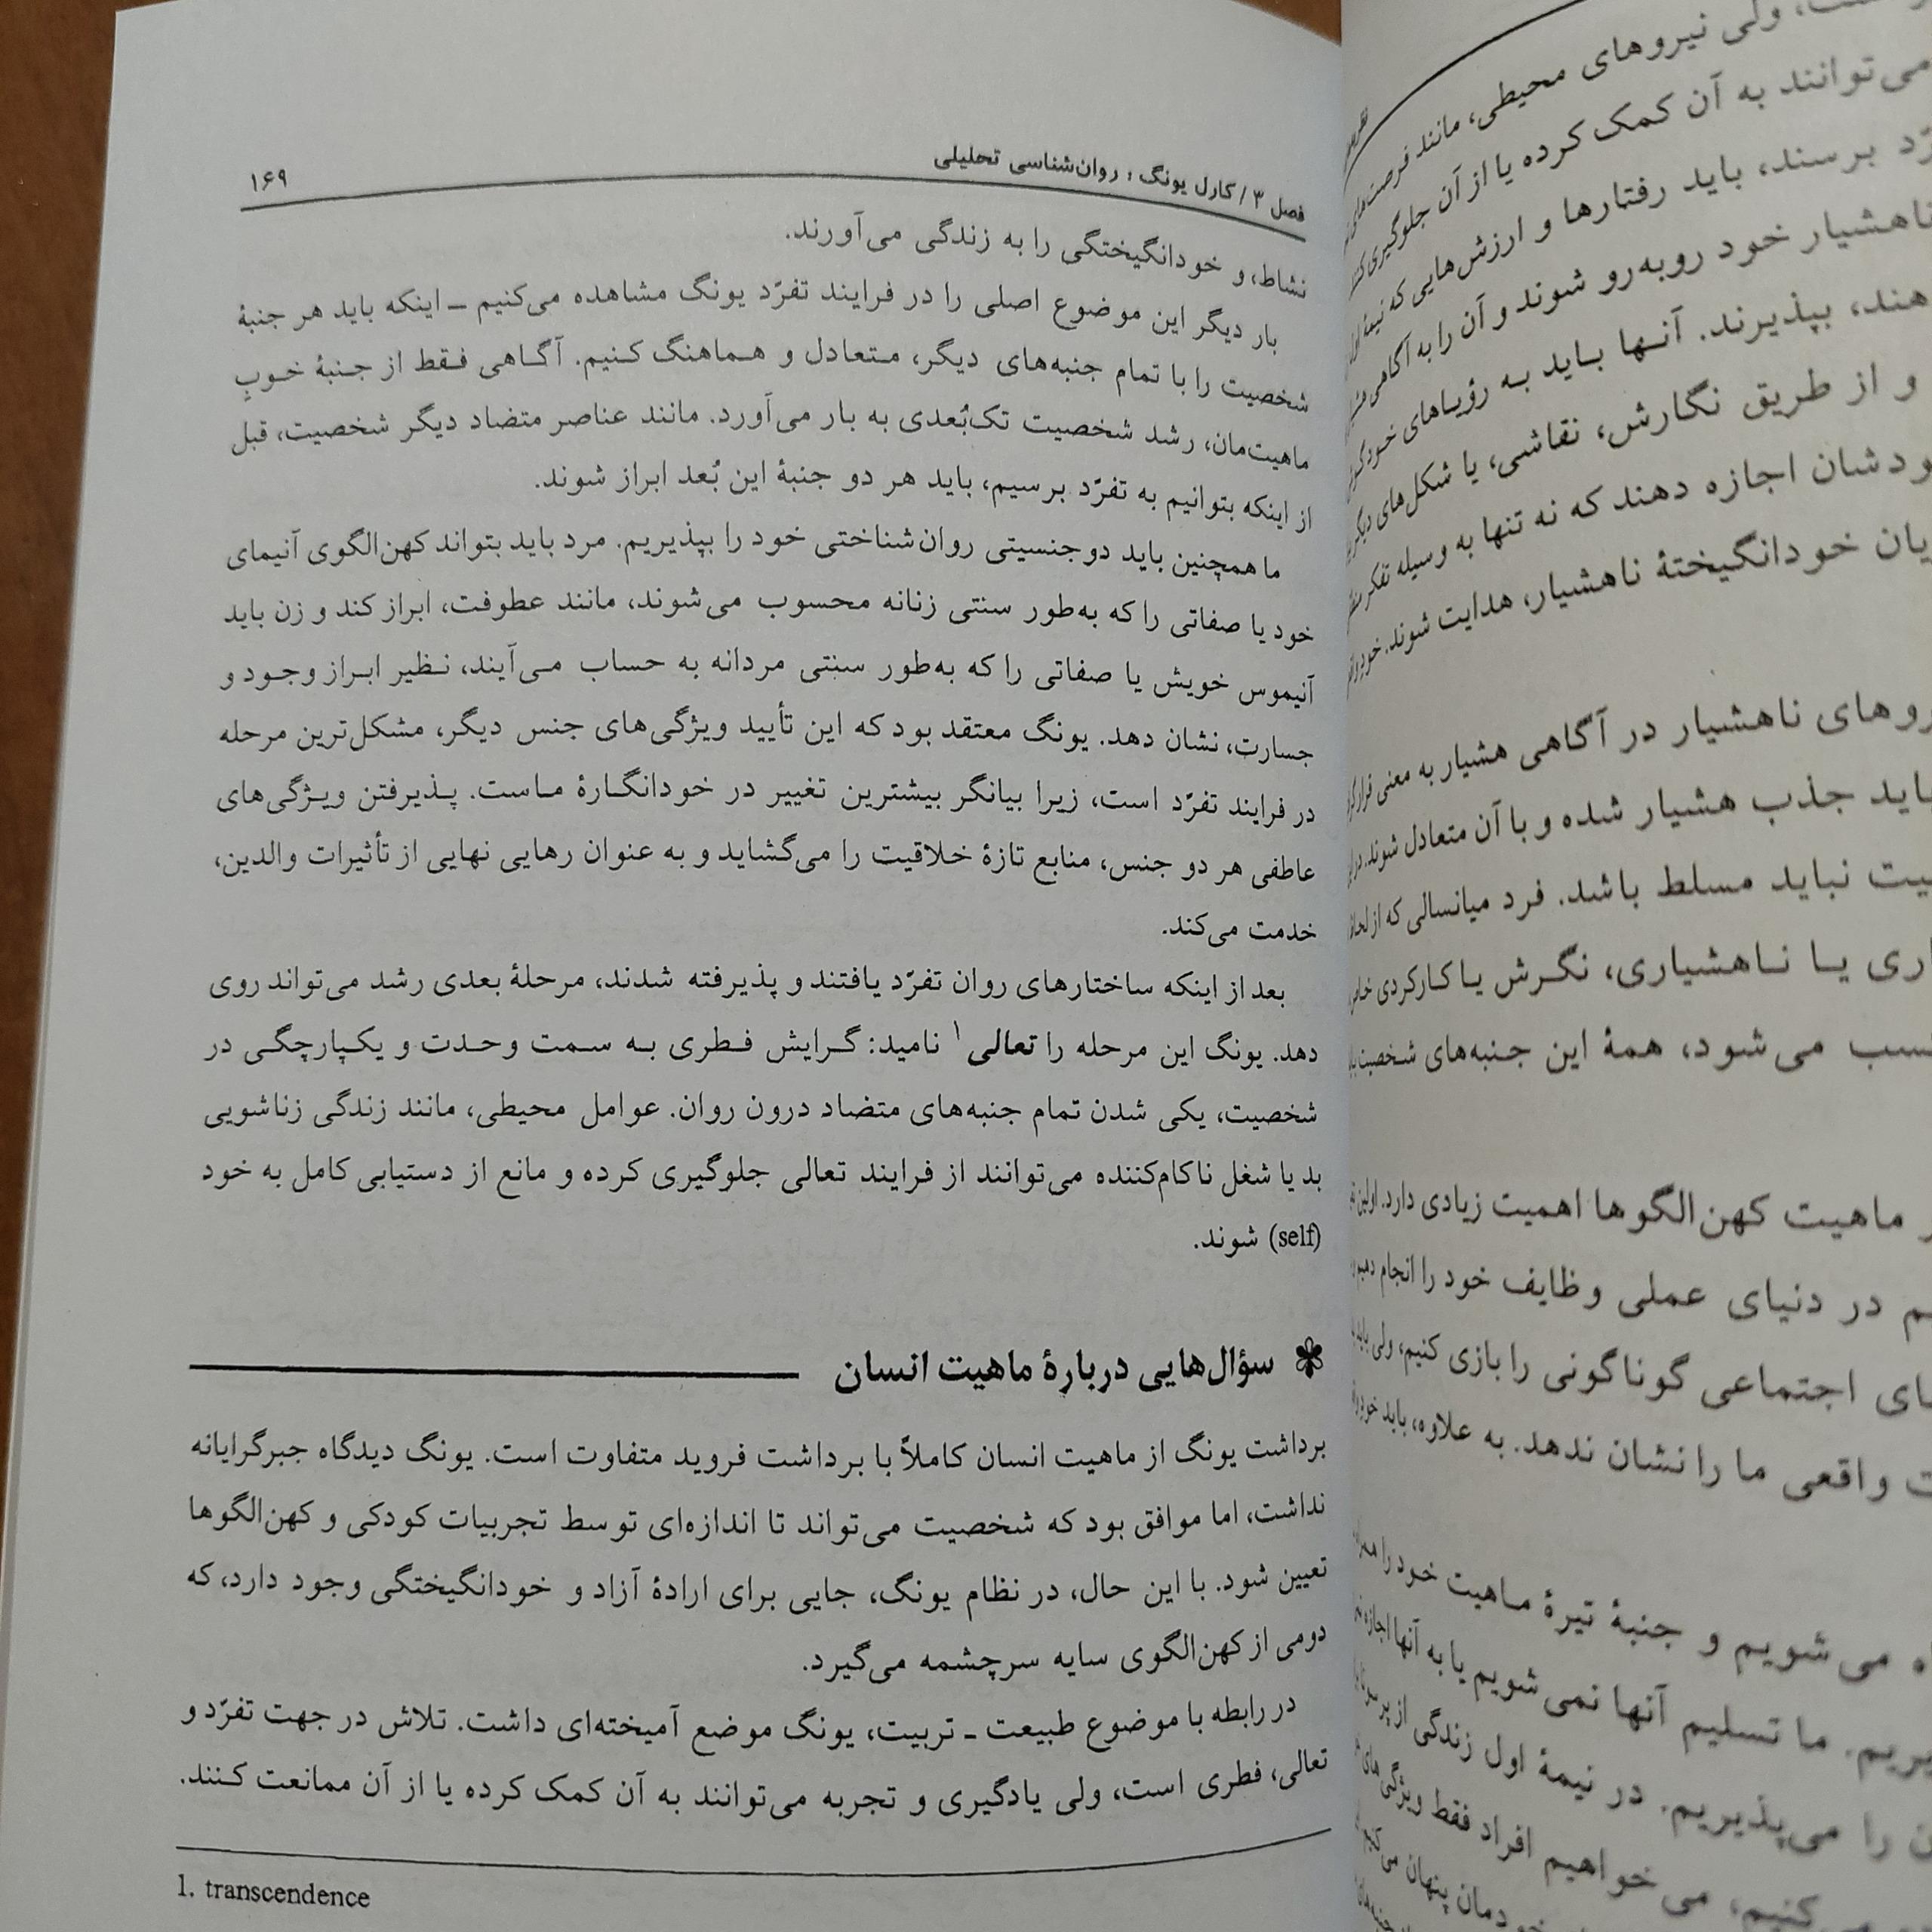 فصل ۳ / کارل یونگ : روان‌شناسی تحلیلی ۱۶۹
نشاط، و خودانگیختگی را به زندگی می‌آورند.
بار دیگر این موضوع اصلی را در فرایند تفرّد یونگ مشاهده می‌کنیم ــ اینکه باید هر جنبهٔ
شخصیت را با تمام جنبه‌های دیگر، متعادل و هماهنگ کنیم. آگاهی فقط از جنبهٔ خوبِ
ماهیت‌مان، رشد شخصیت تک‌بُعدی به بار می‌آورد. مانند عناصر متضاد دیگر شخصیت، قبل
از اینکه بتوانیم به تفرّد برسیم، باید هر دو جنبهٔ این بُعد ابراز شوند.
ما همچنین باید دوجنسیتی روان‌شناختی خود را بپذیریم. مرد باید بتواند کهن‌الگوی آنیمای
خود یا صفاتی را که به‌طور سنتی زنانه محسوب می‌شوند، مانند عطوفت، ابراز کند و زن باید
آنیموس خویش یا صفاتی را که به‌طور سنتی مردانه به حساب می‌آیند، نظیر ابراز وجود و
جسارت، نشان دهد. یونگ معتقد بود که این تأیید ویژگی‌های جنس دیگر، مشکل‌ترین مرحله
در فرایند تفرّد است، زیرا بیانگر بیشترین تغییر در خودانگارهٔ ماست. پذیرفتن ویژگی‌های
عاطفی هر دو جنس، منابع تازهٔ خلاقیت را می‌گشاید و به عنوان رهایی نهایی از تأثیرات والدین،
خدمت می‌کند.
بعد از اینکه ساختارهای روان تفرّد یافتند و پذیرفته شدند، مرحلهٔ بعدی رشد می‌تواند روی
دهد. یونگ این مرحله را تعالی۱ نامید: گرایش فطری به سمت وحدت و یکپارچگی در
شخصیت، یکی شدن تمام جنبه‌های متضاد درون روان. عوامل محیطی، مانند زندگی زناشویی
بد یا شغل ناکام‌کننده می‌توانند از فرایند تعالی جلوگیری کرده و مانع از دستیابی کامل به خود
(self) شوند.
سؤال‌هایی دربارهٔ ماهیت انسان
برداشت یونگ از ماهیت انسان کاملاً با برداشت فروید متفاوت است. یونگ دیدگاه جبرگرایانه
نداشت، اما موافق بود که شخصیت می‌تواند تا اندازه‌ای توسط تجربیات کودکی و کهن‌الگوها
تعیین شود. با این حال، در نظام یونگ، جایی برای ارادهٔ آزاد و خودانگیختگی وجود دارد، که
دومی از کهن‌الگوی سایه سرچشمه می‌گیرد.
در رابطه با موضوع طبیعت ـ تربیت، یونگ موضع آمیخته‌ای داشت. تلاش در جهت تفرّد و
تعالی، فطری است، ولی یادگیری و تجربه می‌توانند به آن کمک کرده یا از آن ممانعت کنند.
1. transcendence
ولی نیروهای محیطی، مانند فرصت‌های
می‌توانند به آن کمک کرده یا از آن جلوگیری کنند
برسند، باید رفتارها و ارزش‌هایی که نیمهٔ اول
ناهشیار خود روبه‌رو شوند و آن را به آگاهی
بپذیرند. آنها باید به رؤیاهای خود
و از طریق نگارش، نقاشی، یا شکل‌های دیگر
اجازه دهند که نه تنها به وسیله تفکر
خودانگیختهٔ ناهشیار، هدایت شوند.
ناهشیار در آگاهی هشیار به معنی
باید جذب هشیار شده و با آن متعادل شوند.
نباید مسلط باشد. فرد میانسالی که از لحاظ
یا ناهشیاری، نگرش یا کارکردی
می‌شود، همهٔ این جنبه‌های شخصیت
ماهیت کهن‌الگوها اهمیت زیادی دارد. اولین
در دنیای عملی وظایف خود را انجام دهیم
اجتماعی گوناگونی را بازی کنیم، ولی باید
واقعی ما را نشان ندهد. به علاوه، باید
می‌شویم و جنبهٔ تیرهٔ ماهیت خود را
ما تسلیم آنها نمی‌شویم یا به آنها اجازه
را می‌پذیریم. در نیمهٔ اول زندگی از
می‌خواهیم افراد فقط ویژگی‌های
پنهان می‌کنیم